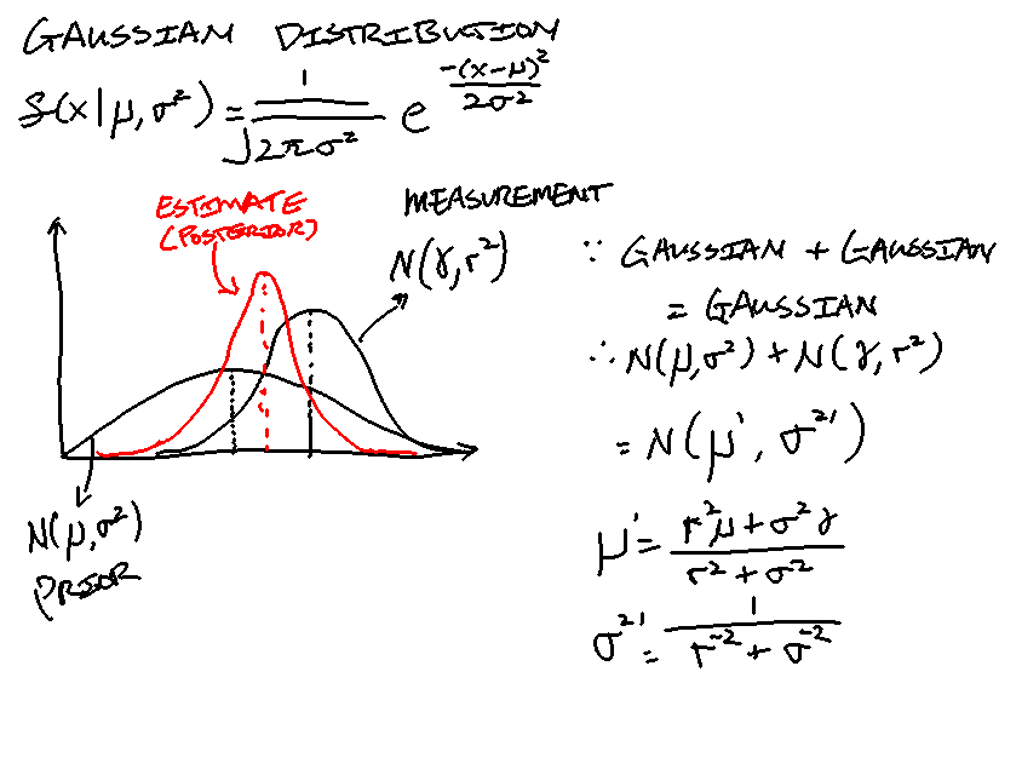 GAUSSIAN DISTRIBUTION
f(x|μ,σ²) = 1/√(2πσ²) e^(-(x-μ)²/2σ²)
ESTIMATE
(POSTERIOR)
MEASUREMENT
N(γ,r²)
N(μ,σ²)
PRIOR
∵ GAUSSIAN + GAUSSIAN
= GAUSSIAN
∴ N(μ,σ²) + N(γ,r²)
= N(μ', σ²')
μ' = (r²μ + σ²γ)/(r² + σ²)
σ²' = 1/(r⁻² + σ⁻²)